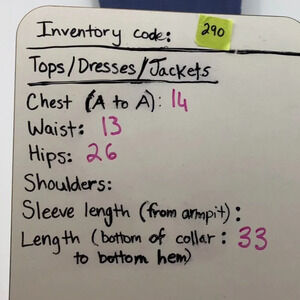 Inventory code: 290
Tops/Dresses/Jackets
Chest (A to A): 14
Waist: 13
Hips: 26
Shoulders:
Sleeve length (from armpit):
Length (bottom of collar: 33
to bottom hem)